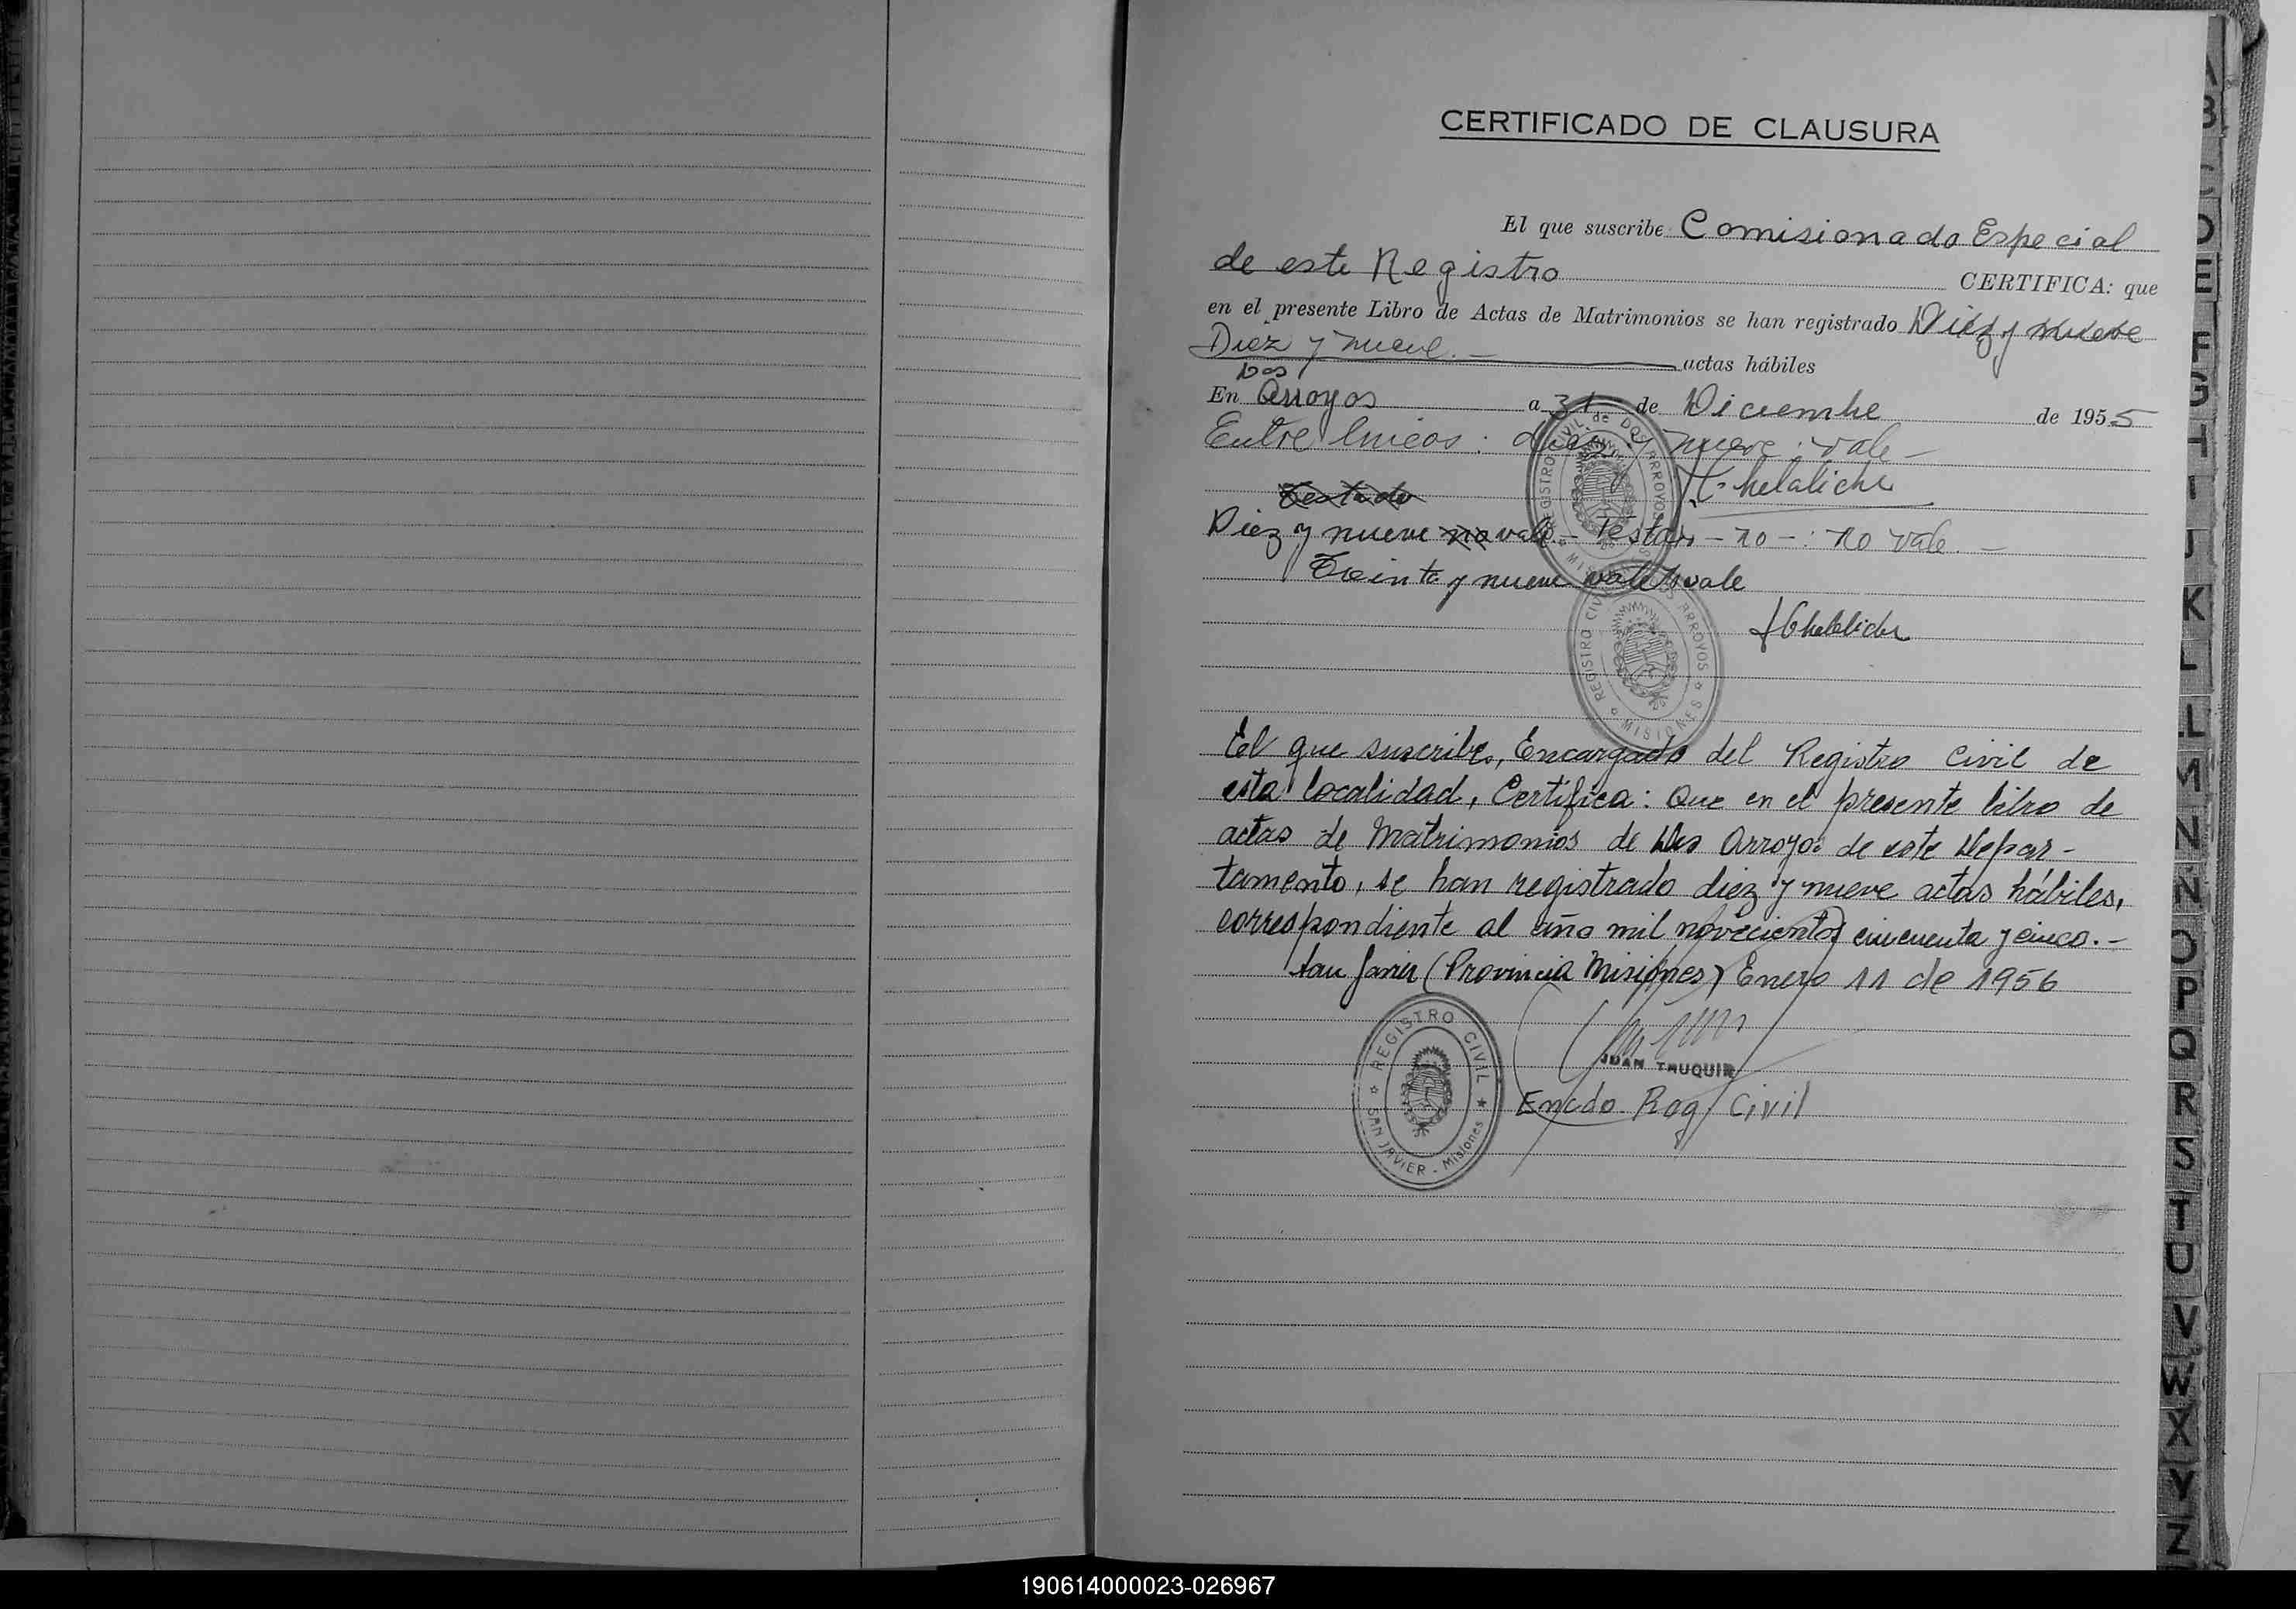 CERTIFICADO DE CLAUSURA
El que suscribe Comisionado Especial
de este Registro CERTIFICA: que
en el presente Libro de Actas de Matrimonios se han registrado Diez y nueve
Diez y nueve.— actas hábiles
Dos
En Arroyos a 31 de Diciembre de 1955
Entre lineas: diez y nueve: vale—
Testado
Diez y nueve no vale.— Testado — no —: no vale.—
Treinta y nueve vale vale
REGISTRO CIVIL de DOS ARROYOS
MISIONES
REGISTRO CIVIL DOS ARROYOS
MISIONES
El que suscribe, Encargado del Registro Civil de
esta localidad, Certifica: Que en el presente libro de
actas de Matrimonios de Dos Arroyos de este Depar-
tamento, se han registrado diez y nueve actas hábiles,
correspondiente al año mil novecientos cincuenta y cinco.—
San Javier (Provincia Misiones) Enero 11 de 1956
REGISTRO CIVIL
SAN JAVIER - Misiones
JUAN TRUQUIN
Encdo Reg Civil
A
B
C
D
E
F
G
H
I
J
K
L
LL
M
N
Ñ
O
P
Q
R
S
T
U
V
W
X
Y
Z
190614000023-026967